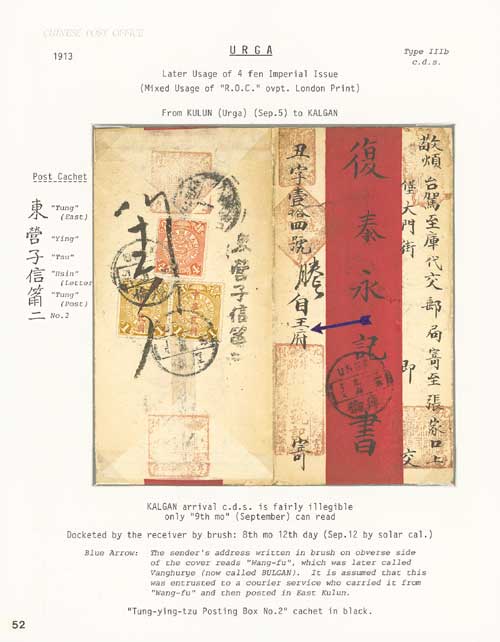 CHINESE POST OFFICE
1913
URGA
Type IIIb
c.d.s.
Later Usage of 4 fen Imperial Issue
(Mixed Usage of "R.O.C." ovpt. London Print)
From KULUN (Urga) (Sep.5) to KALGAN
Post Cachet
東 "Tung" (East)
營 "Ying"
子 "Tzu"
信 "Hsin" (Letter
"Tung" (Post)
二 No.2
敬煩台駕至庫代交郵局寄至張家口上
堡大門街 即交
復泰永記書
丑字壹拾四號
自王府
寄
東營子信
KALGAN arrival c.d.s. is fairly illegible
only "9th mo" (September) can read
Docketed by the receiver by brush: 8th mo 12th day (Sep.12 by solar cal.)
Blue Arrow: The sender's address written in brush on obverse side
of the cover reads "Wang-fu", which was later called
Vanghurye (now called BULGAN). It is assumed that this
was entrusted to a courier service who carried it from
"Wang-fu" and then posted in East Kulun.
"Tung-ying-tzu Posting Box No.2" cachet in black.
52